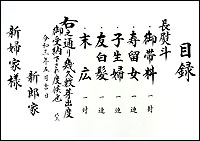 目録
長熨斗
一御帯料 一封
一寿留女 一連
一子生婦 一連
一友白髪 一連
一末広 一対
右之通り幾久敷芽出度
御受納下され度候也
令和三年五月吉日
新郎家
新婦家様